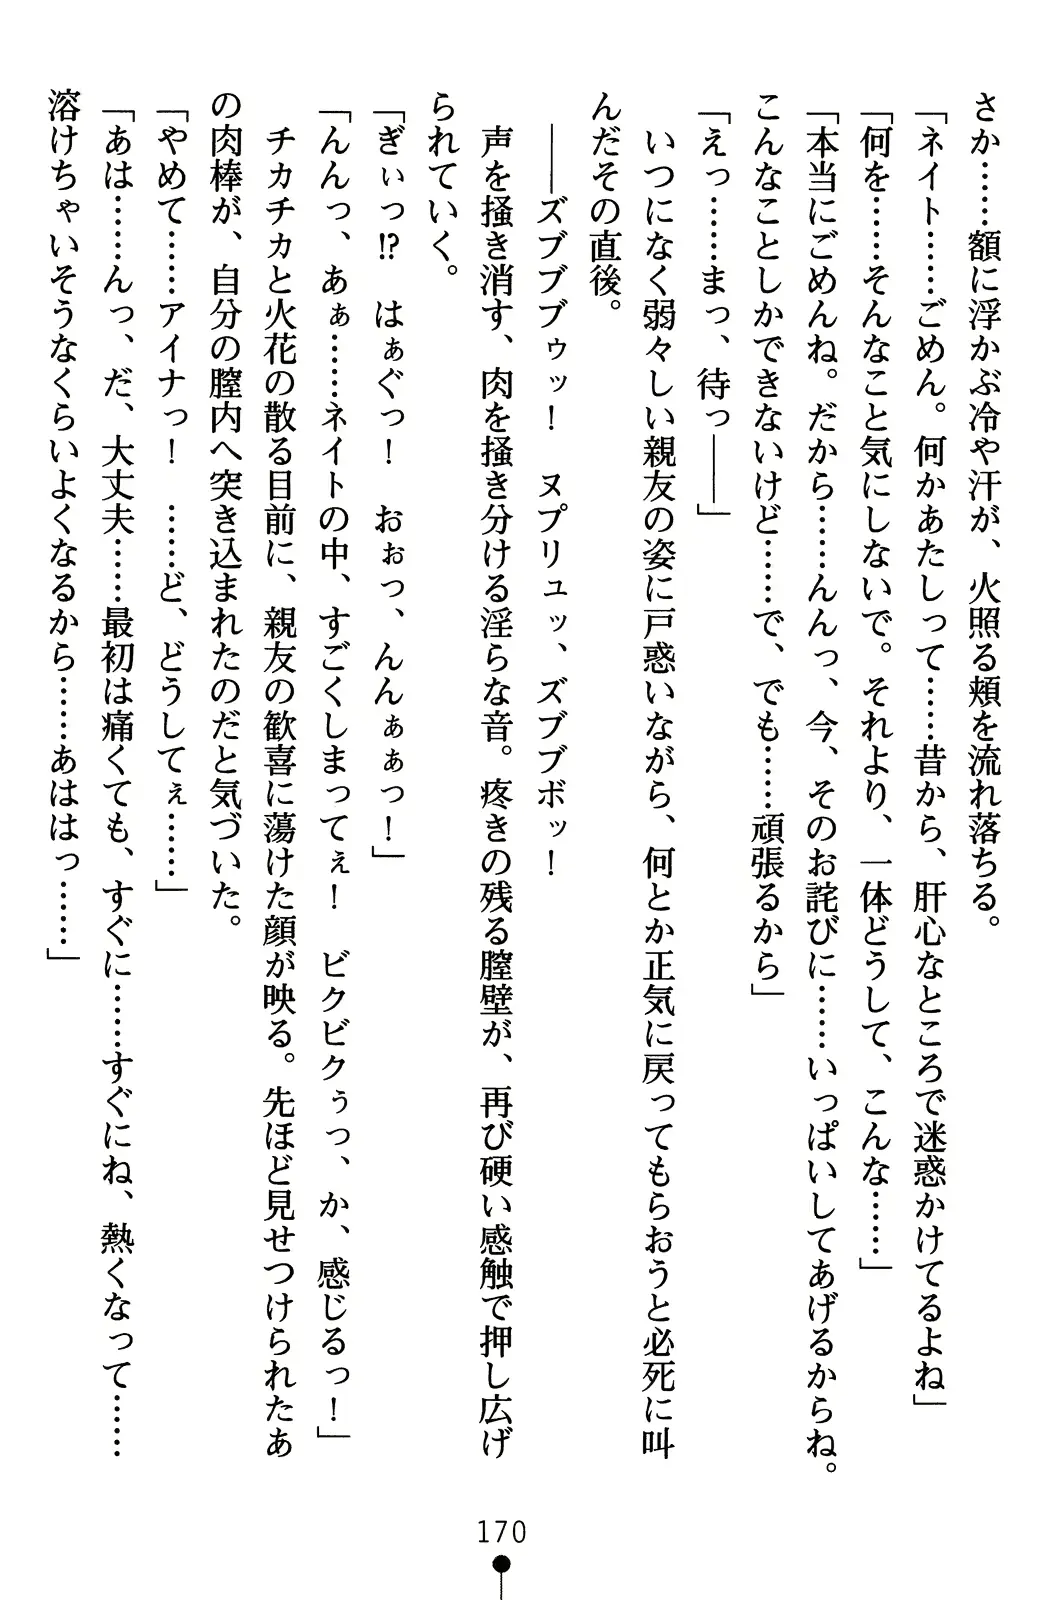 さか……額に浮かぶ冷や汗が、火照る頬を流れ落ちる。
「ネイト……ごめん。何かあたしって……昔から、肝心なところで迷惑かけてるよね」
「何を……そんなこと気にしないで。それより、一体どうして、こんな……」
「本当にごめんね。だから……んんっ、今、そのお詫びに……いっぱいしてあげるからね。
こんなことしかできないけど……で、でも……頑張るから」
「えっ……まっ、待っ――」
いつになく弱々しい親友の姿に戸惑いながら、何とか正気に戻ってもらおうと必死に叫
んだその直後。
――ズブブブゥッ！　ヌプリュッ、ズブブボッ！
声を掻き消す、肉を掻き分ける淫らな音。疼きの残る膣壁が、再び硬い感触で押し広げ
られていく。
「ぎぃっ!?　はぁぐっ！　おぉっ、んんぁぁっ！」
「んんっ、あぁ……ネイトの中、すごくしまってぇ！　ビクビクぅっ、か、感じるっ！」
チカチカと火花の散る目前に、親友の歓喜に蕩けた顔が映る。先ほど見せつけられたあ
の肉棒が、自分の膣内へ突き込まれたのだと気づいた。
「やめて……アイナっ！　……ど、どうしてぇ……」
「あは……んっ、だ、大丈夫……最初は痛くても、すぐに……すぐにね、熱くなって……
溶けちゃいそうなくらいよくなるから……あははっ……」
170